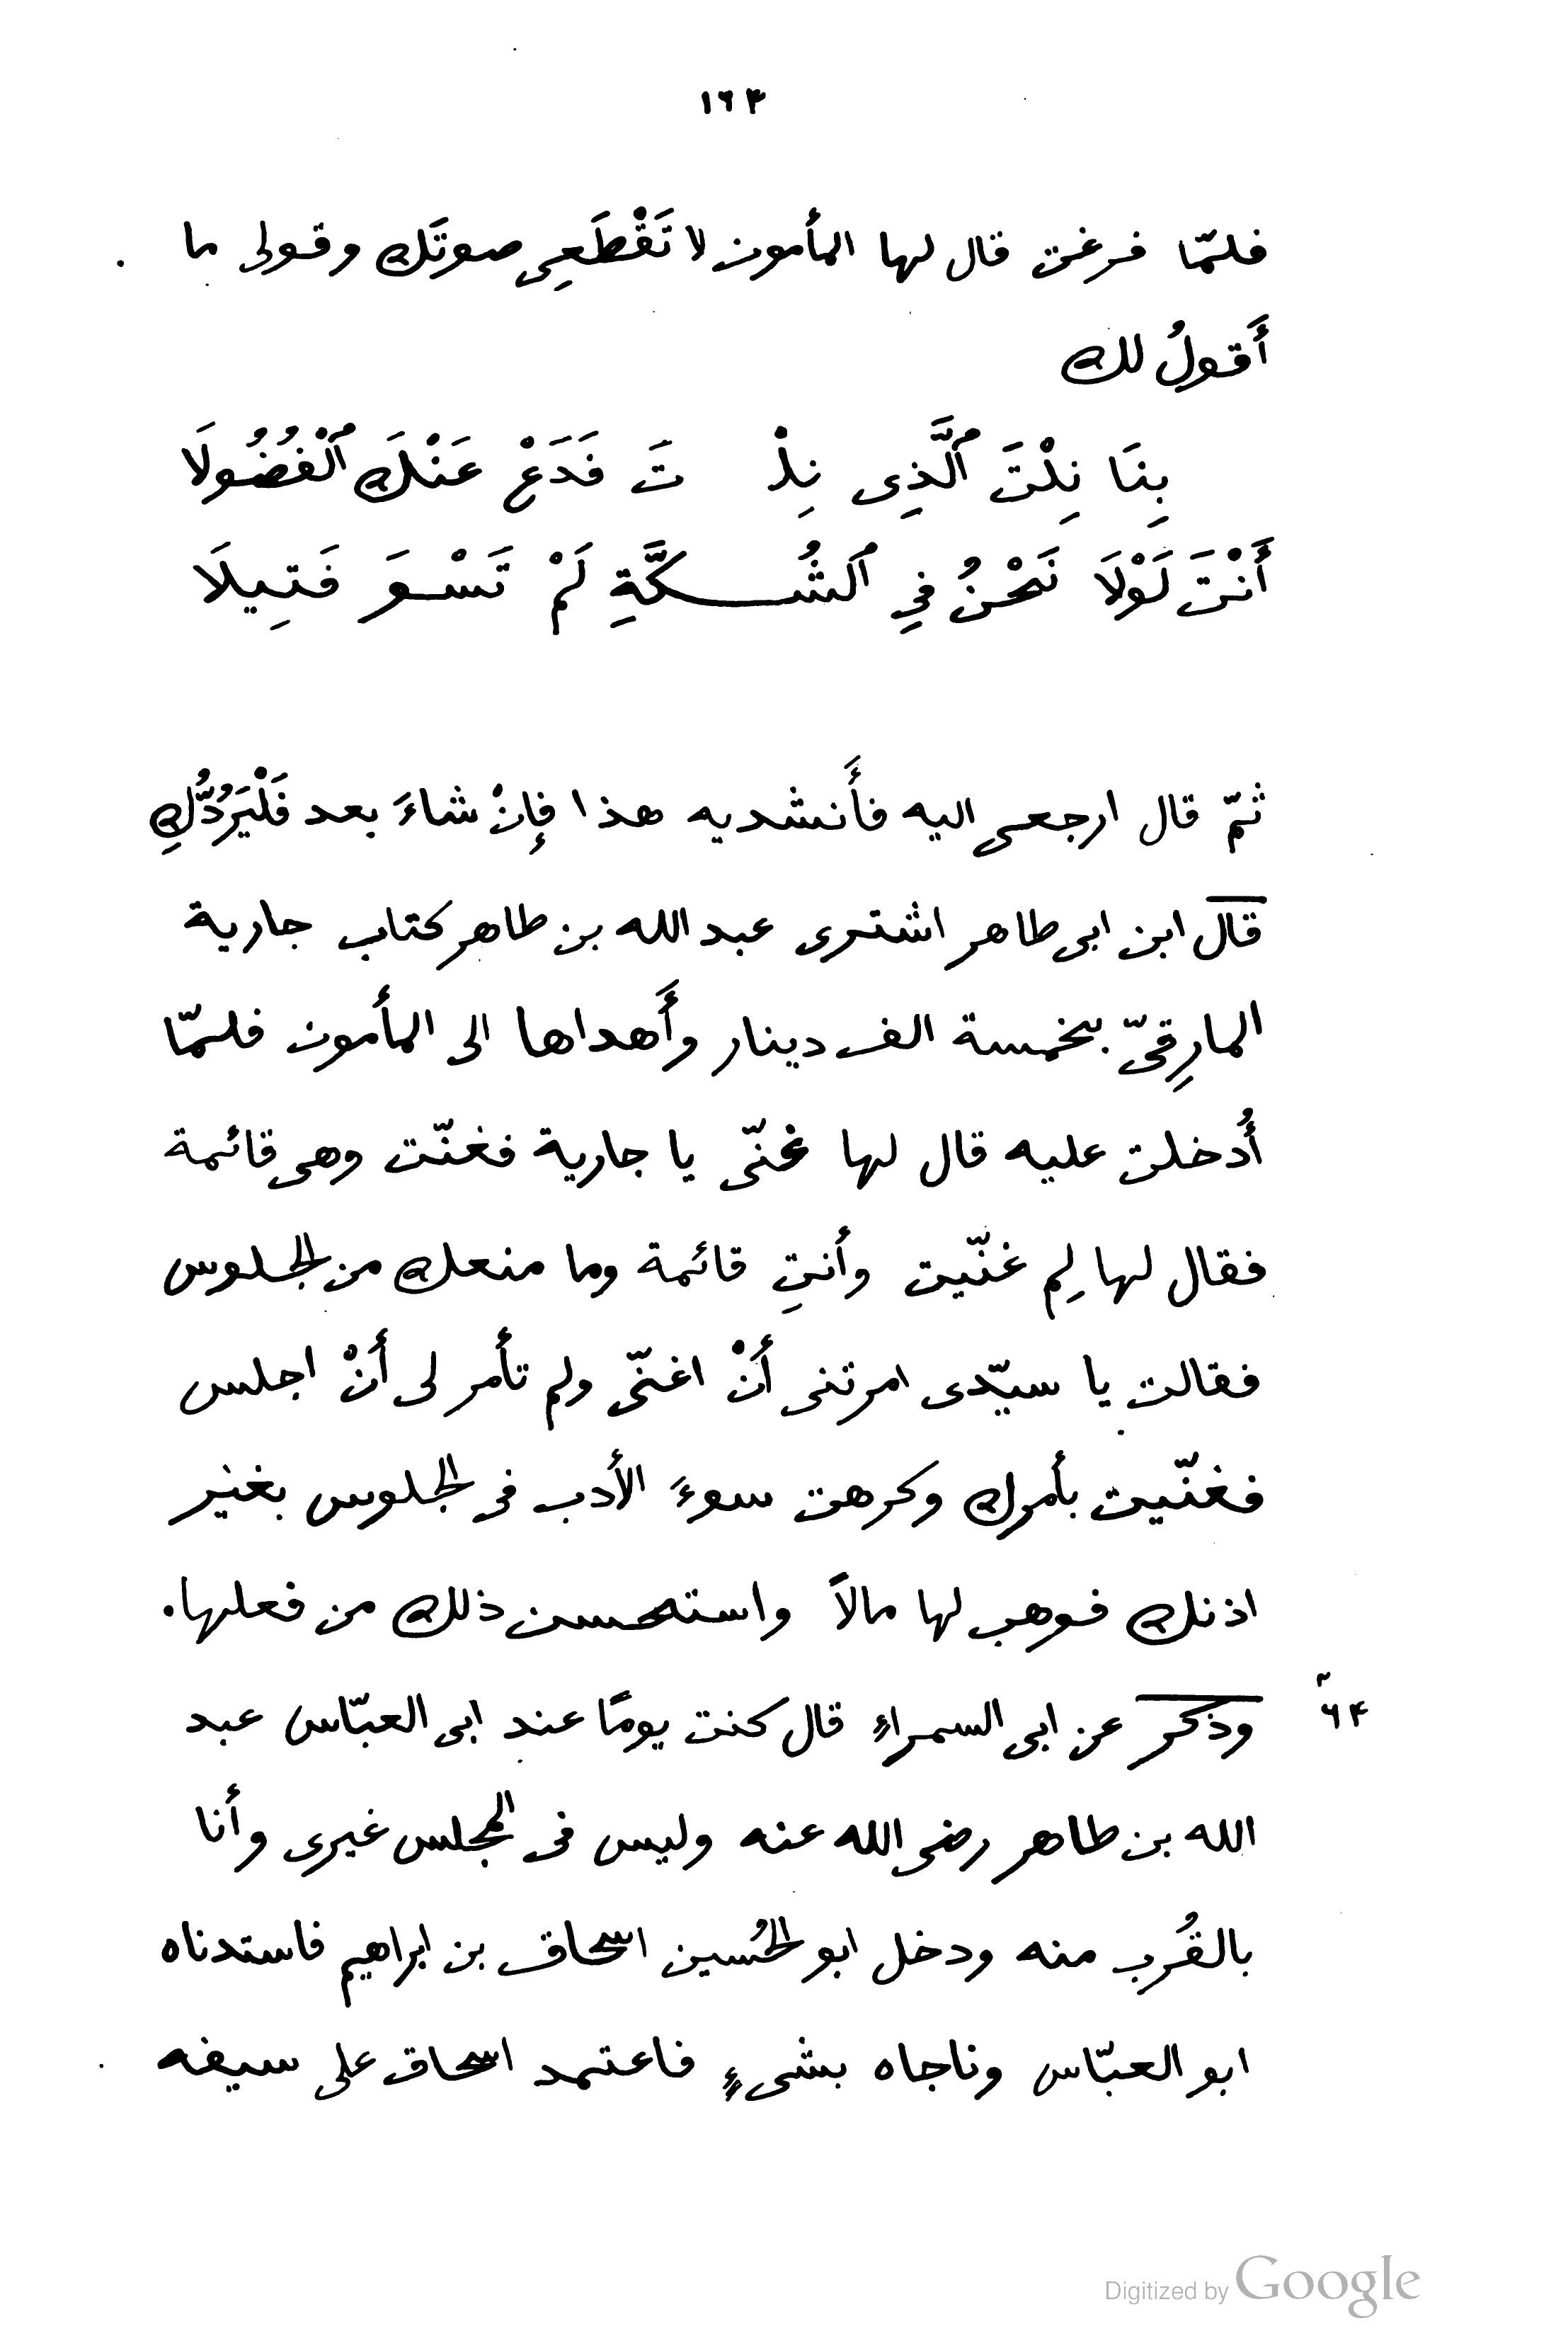 ١٦٣
فلمّا فرغت قال لها المأمون لا تَقْطَعِى صوتَك وقولى ما
أَقولُ لك
بِنَا نِلْتَ ٱلَّذِى نِلْـ ـتَ فَدَعْ عَنْكَ ٱلْفُضُولَا
أَنْتَ لَوْلَا نَحْنُ فِي ٱلشُّكَّةِ لَمْ تَسْوَ فَتِيلَا
ثمّ قال ارجعى اليه فأَنشديه هذا فإِنْ شاءَ بعد فَلْيَرُدُّكِ
قال ابن ابى طاهر اشترى عبد الله بن طاهر كتاب جارية
المارِقىّ بخمسة الف دينار وأَهداها الى المأمون فلمّا
أُدخلت عليه قال لها غنّى يا جارية فغنّت وهى قائمة
فقال لها لِم غنّيت وأنتِ قائمة وما منعك من الجلوس
فقالت يا سيّدى امرتنى أَنْ اغنّى ولم تأمر لى أَنْ اجلس
فغنّيت بأمرك وكرهت سوءَ الأَدب فى الجلوس بغير
اذنك فوهب لها مالاً واستحسن ذلك من فعلها.
٦٤
وذكر عن ابى السمراءِ قال كنت يومًا عند ابى العبّاس عبد
الله بن طاهر رضى الله عنه وليس فى المجلس غيرى وأنا
بالقُرب منه ودخل ابو الحُسين اسحاق بن ابراهيم فاستدناه
ابو العبّاس وناجاه بشىءٍ فاعتمد اسحاق على سيفه
Digitized by Google